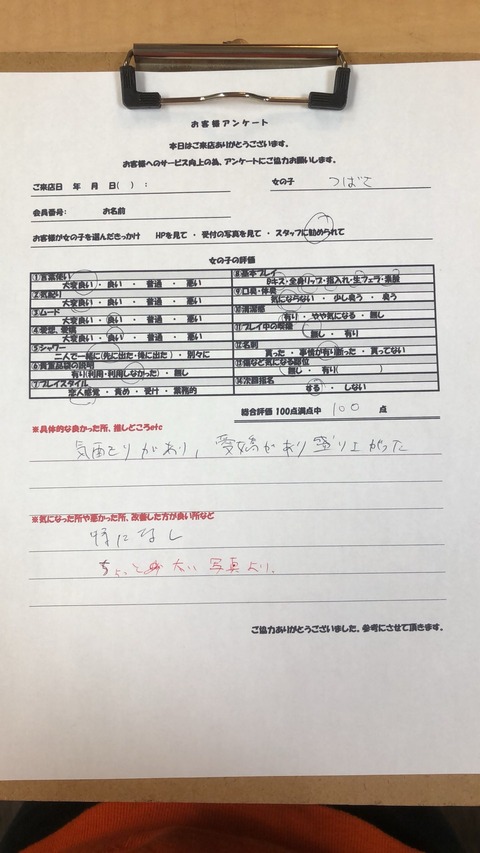 お客様アンケート
本日はご来店ありがとうございます。
お客様へのサービス向上の為、アンケートにご協力お願いします。
ご来店日　年　月　日(　)　：
女の子　つばさ
会員番号：　お名前
お客様が女の子を選んだきっかけ　HPを見て ・ 受付の写真を見て ・ スタッフに勧められて
女の子の評価
①言葉使い
大変良い ・ 良い ・ 普通 ・ 悪い
②気配り
大変良い ・ 良い ・ 普通 ・ 悪い
③ムード
大変良い ・ 良い ・ 普通 ・ 悪い
④愛想、愛嬌
大変良い ・ 良い ・ 普通 ・ 悪い
⑤シャワー
二人で一緒に(先に出た・後に出た) ・ 別々に
⑥貴重品袋の説明
有り(利用・利用しなかった) ・ 無し
⑦プレイスタイル
恋人感覚 ・ 責め ・ 受け ・ 業務的
⑧基本プレイ
Dキス・全身リップ・指入れ・生フェラ・素股
⑨口臭・体臭
気にならない ・ 少し臭う ・ 臭う
⑩清潔感
有り ・ やや気になる ・ 無し
⑪プレイ中の喫煙
無し ・ 有り
⑫名刺
貰った ・ 事情が有り断った ・ 貰ってない
⑬傷など気になる部位
無し ・ 有り(　)
⑭次回指名
する ・ しない
総合評価 100点満点中　100　点
※具体的な良かった所、推しどころetc
気配りがあり、愛嬌があり盛り上がった
※気になった所や悪かった所、改善した方が良い所など
特になし
ちょっと太い写真より。
ご協力ありがとうございました。参考にさせて頂きます。